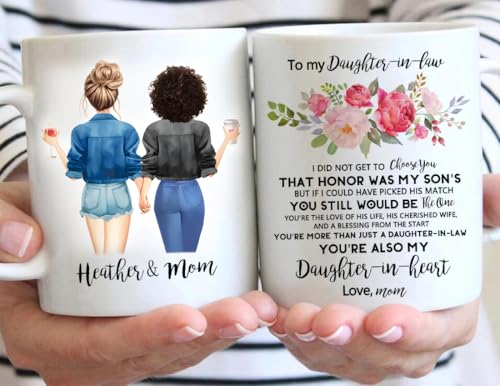 Heather & Mom
To my Daughter-in-law
I DID NOT GET TO Choose You
THAT HONOR WAS MY SON'S
BUT IF I COULD HAVE PICKED HIS MATCH
YOU STILL WOULD BE The One
YOU'RE THE LOVE OF HIS LIFE, HIS CHERISHED WIFE,
AND A BLESSING FROM THE START
YOU'RE MORE THAN JUST A DAUGHTER-IN-LAW
YOU'RE ALSO MY
Daughter-in-heart
Love, mom